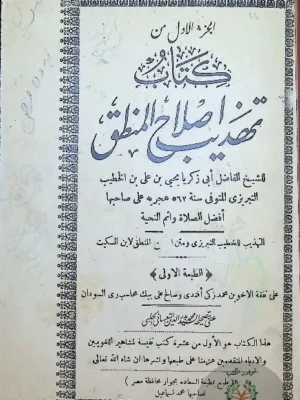 الجزء الاول من
كتاب
تهذيب اصلاح المنطق
للشيخ الفاضل أبي زكريا يحيي بن علي بن الخطيب
التبريزي المتوفى سنة ٥٠٢ هجريه على صاحبها
أفضل الصلاة واتم التحية
التهذيب للخطيب التبريزي ومتن المنطق لابن السكيت
﴿ الطبعة الاولى ﴾
على نفقة الاخوين محمد زكى أفندي وصالح علي بيك محاسب رى السودان
هذا الكتاب هو الأول من عشرة كتب نفيسة لمشاهير اللغويين
والادباء المتقدمين عزمنا على طبعها ونشرها ان شاء الله تعالى
( طبع بمطبعة السعاده بجوار محافظة مصر )
لصاحبها محمد اسماعيل